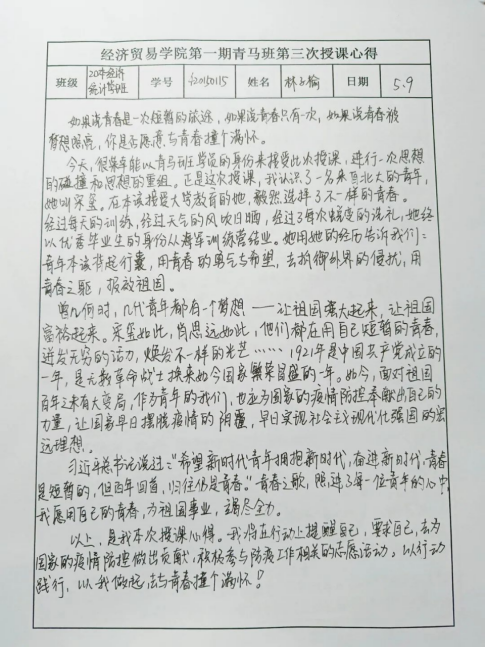 经济贸易学院第一期青马班第三次授课心得
班级 20本经济统计学班 学号 姓名 林子榆 日期 5.9
如果说青春是一次短暂的旅途，如果说青春只有一次，如果说青春被
梦想照亮，你是否愿意与青春撞个满怀。
今天，很荣幸能以青马班学员的身份来接受此次授课，进行一次思想
的碰撞和思想的重组。正是这次授课，我认识了一名来自北大的青年，
她叫宋玺。在本该接受大学教育的她，毅然选择了不一样的青春。
经过每天的训练，经过天气的风吹日晒，经过了每次强度的洗礼，她终
以优秀毕业生的身份从海军训练营结业。她用她的经历告诉我们：
青年本该背起行囊，用青春的勇气与希望，去抵御外界的侵扰，用
青春之躯，报效祖国。
曾几何时，几代青年都有一个梦想——让祖国强大起来，让祖国
富裕起来。宋玺如此，肖思远如此，他们都在用自己短暂的青春，
迸发无穷的活力，焕发不一样的光芒……1921年是中国共产党成立的
一年，是无数革命战士换来如今国家繁荣昌盛的一年。如今，面对祖国
百年未有大变局，作为青年的我们，也应为国家的疫情防控奉献出自己的
力量，让国家早日摆脱疫情的阴霾，早日实现社会主义现代化强国的宏
远理想。
习近平总书记说过："希望新时代青年拥抱新时代，奋进新时代，青春
是短暂的，但百年回首，归往仍是青春。"青春之歌，限进了每一位青年的心中，
我愿用自己的青春，为祖国事业，竭尽全力。
以上，是我本次授课心得。我将在行动上提醒自己，要求自己，去为
国家的疫情防控做出贡献，积极参与防疫工作相关的志愿活动。以行动
践行，以我做起，去与青春撞个满怀！